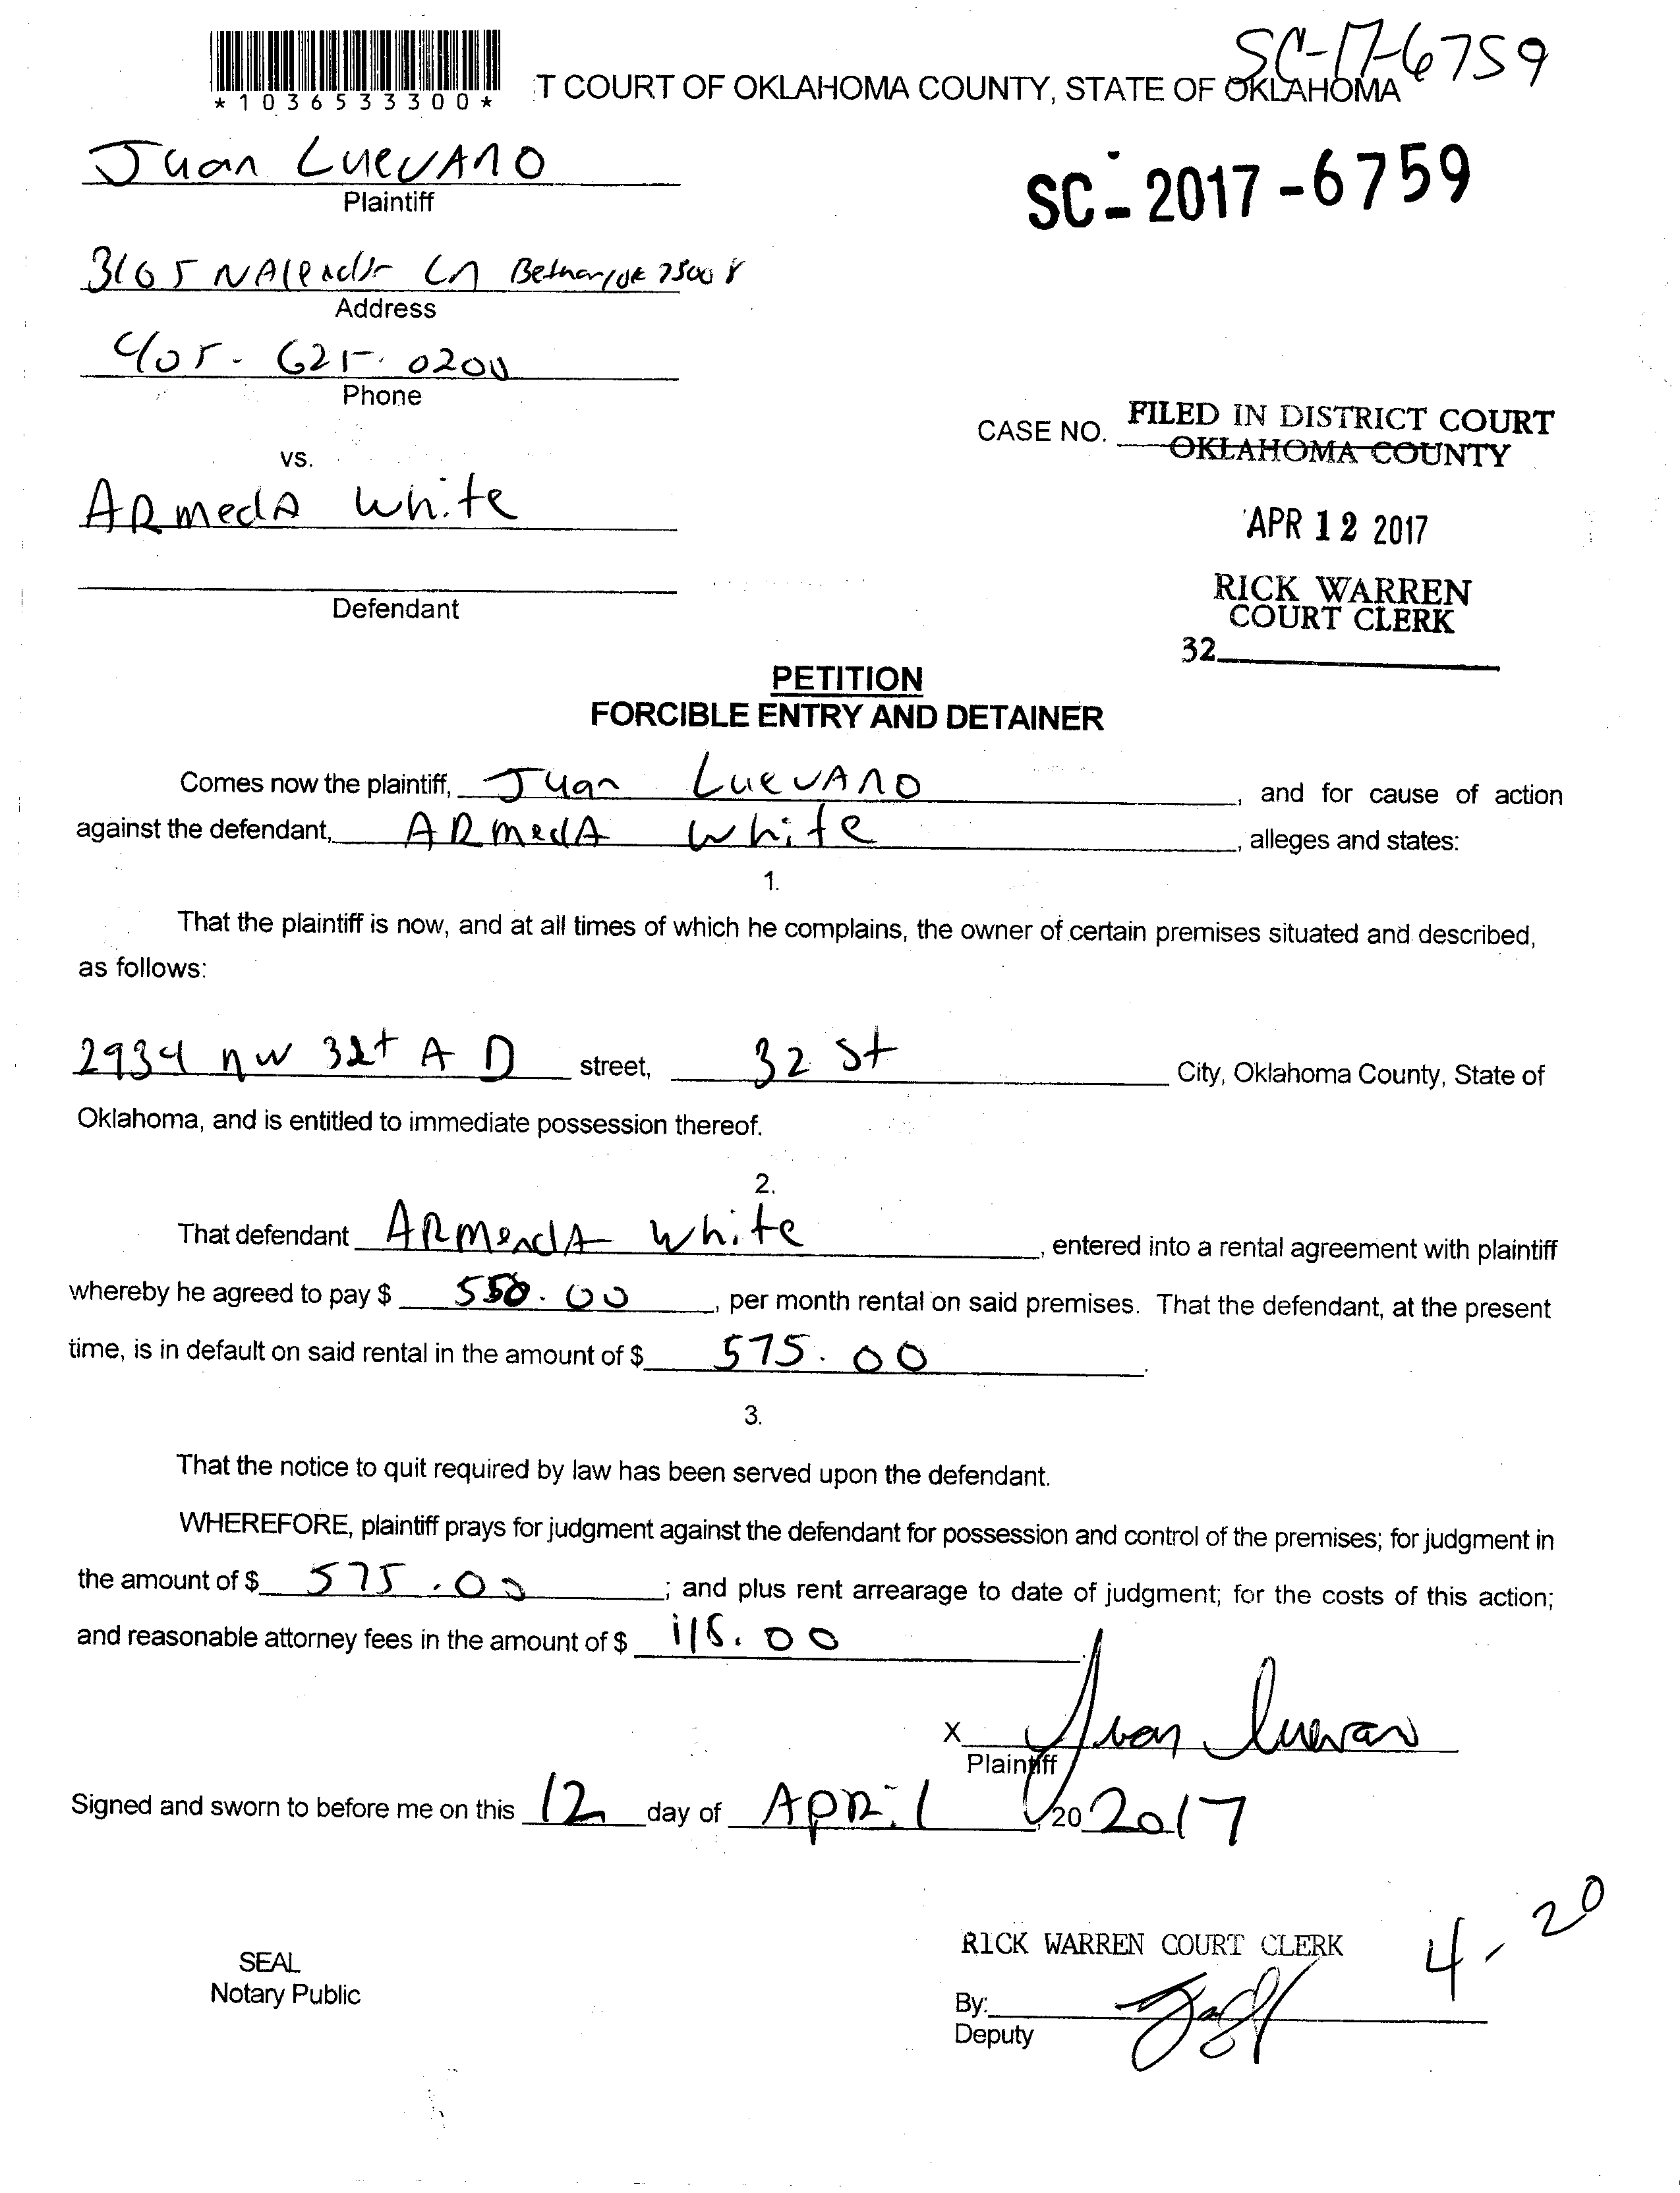 SC-17-6759
*1036533300*
T COURT OF OKLAHOMA COUNTY, STATE OF OKLAHOMA
Juan LueVANO
Plaintiff
SC-2017-6759
3165 Ln
Address
405-625-0200
Phone
CASE NO. FILED IN DISTRICT COURT
OKLAHOMA COUNTY
vs.
ARmedA White
APR 12 2017
RICK WARREN
COURT CLERK
Defendant
32
PETITION
FORCIBLE ENTRY AND DETAINER
Comes now the plaintiff, Juan LueVANO, and for cause of action
against the defendant, ARmedA white, alleges and states:
1.
That the plaintiff is now, and at all times of which he complains, the owner of certain premises situated and described,
as follows:
2934 nw 32t A D street, 32 St City, Oklahoma County, State of
Oklahoma, and is entitled to immediate possession thereof.
2.
That defendant ARMendA White, entered into a rental agreement with plaintiff
whereby he agreed to pay $ 550.00, per month rental on said premises. That the defendant, at the present
time, is in default on said rental in the amount of $ 575.00.
3.
That the notice to quit required by law has been served upon the defendant.
WHEREFORE, plaintiff prays for judgment against the defendant for possession and control of the premises; for judgment in
the amount of $ 575.00; and plus rent arrearage to date of judgment; for the costs of this action;
and reasonable attorney fees in the amount of $ 115.00.
X Juan Luevano
Plaintiff
Signed and sworn to before me on this 12 day of April, 20 2017
4-20
RICK WARREN COURT CLERK
SEAL
Notary Public
By:
Deputy